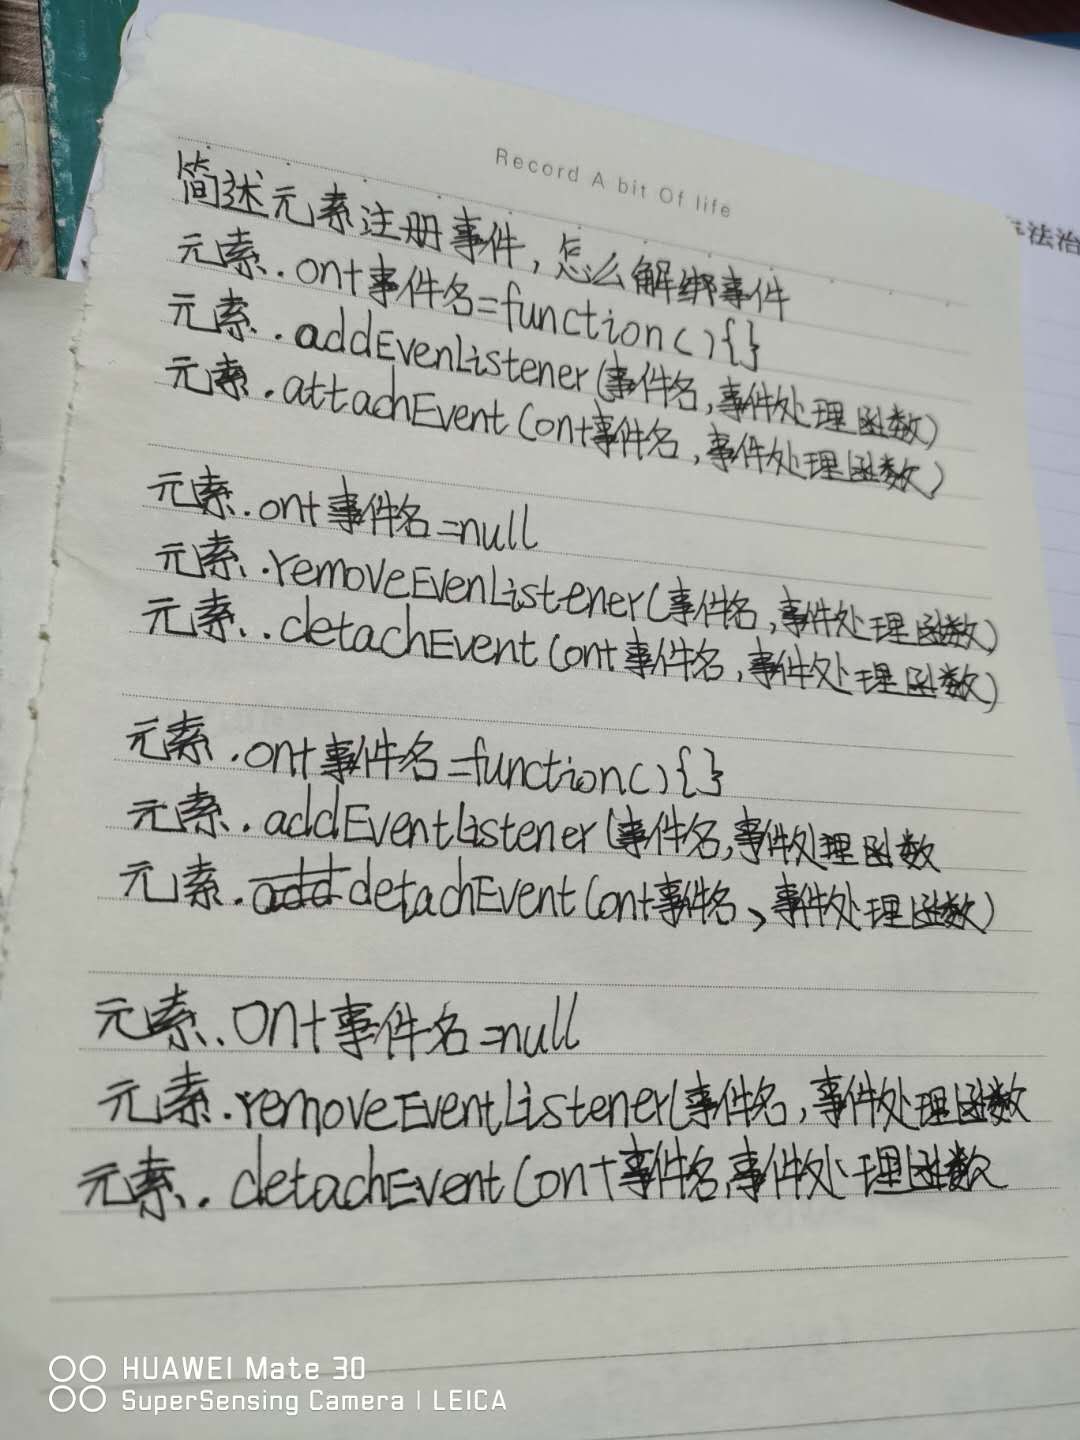 Record A bit Of life
法治
简述元素注册事件,怎么解绑事件
元素.on+事件名=function(){}
元素.addEvenListener(事件名,事件处理函数)
元素.attachEvent(on+事件名,事件处理函数)
元素.on+事件名=null
元素.removeEvenListener(事件名,事件处理函数)
元素..detachEvent(on+事件名,事件处理函数)
元素.on+事件名=function(){}
元素.addEventListener(事件名,事件处理函数
元素.add detachEvent(on+事件名、事件处理函数)
元素.on+事件名=null
元素.removeEventListener(事件名,事件处理函数
元素..detachEvent(on+事件名,事件处理函数
HUAWEI Mate 30
SuperSensing Camera | LEICA